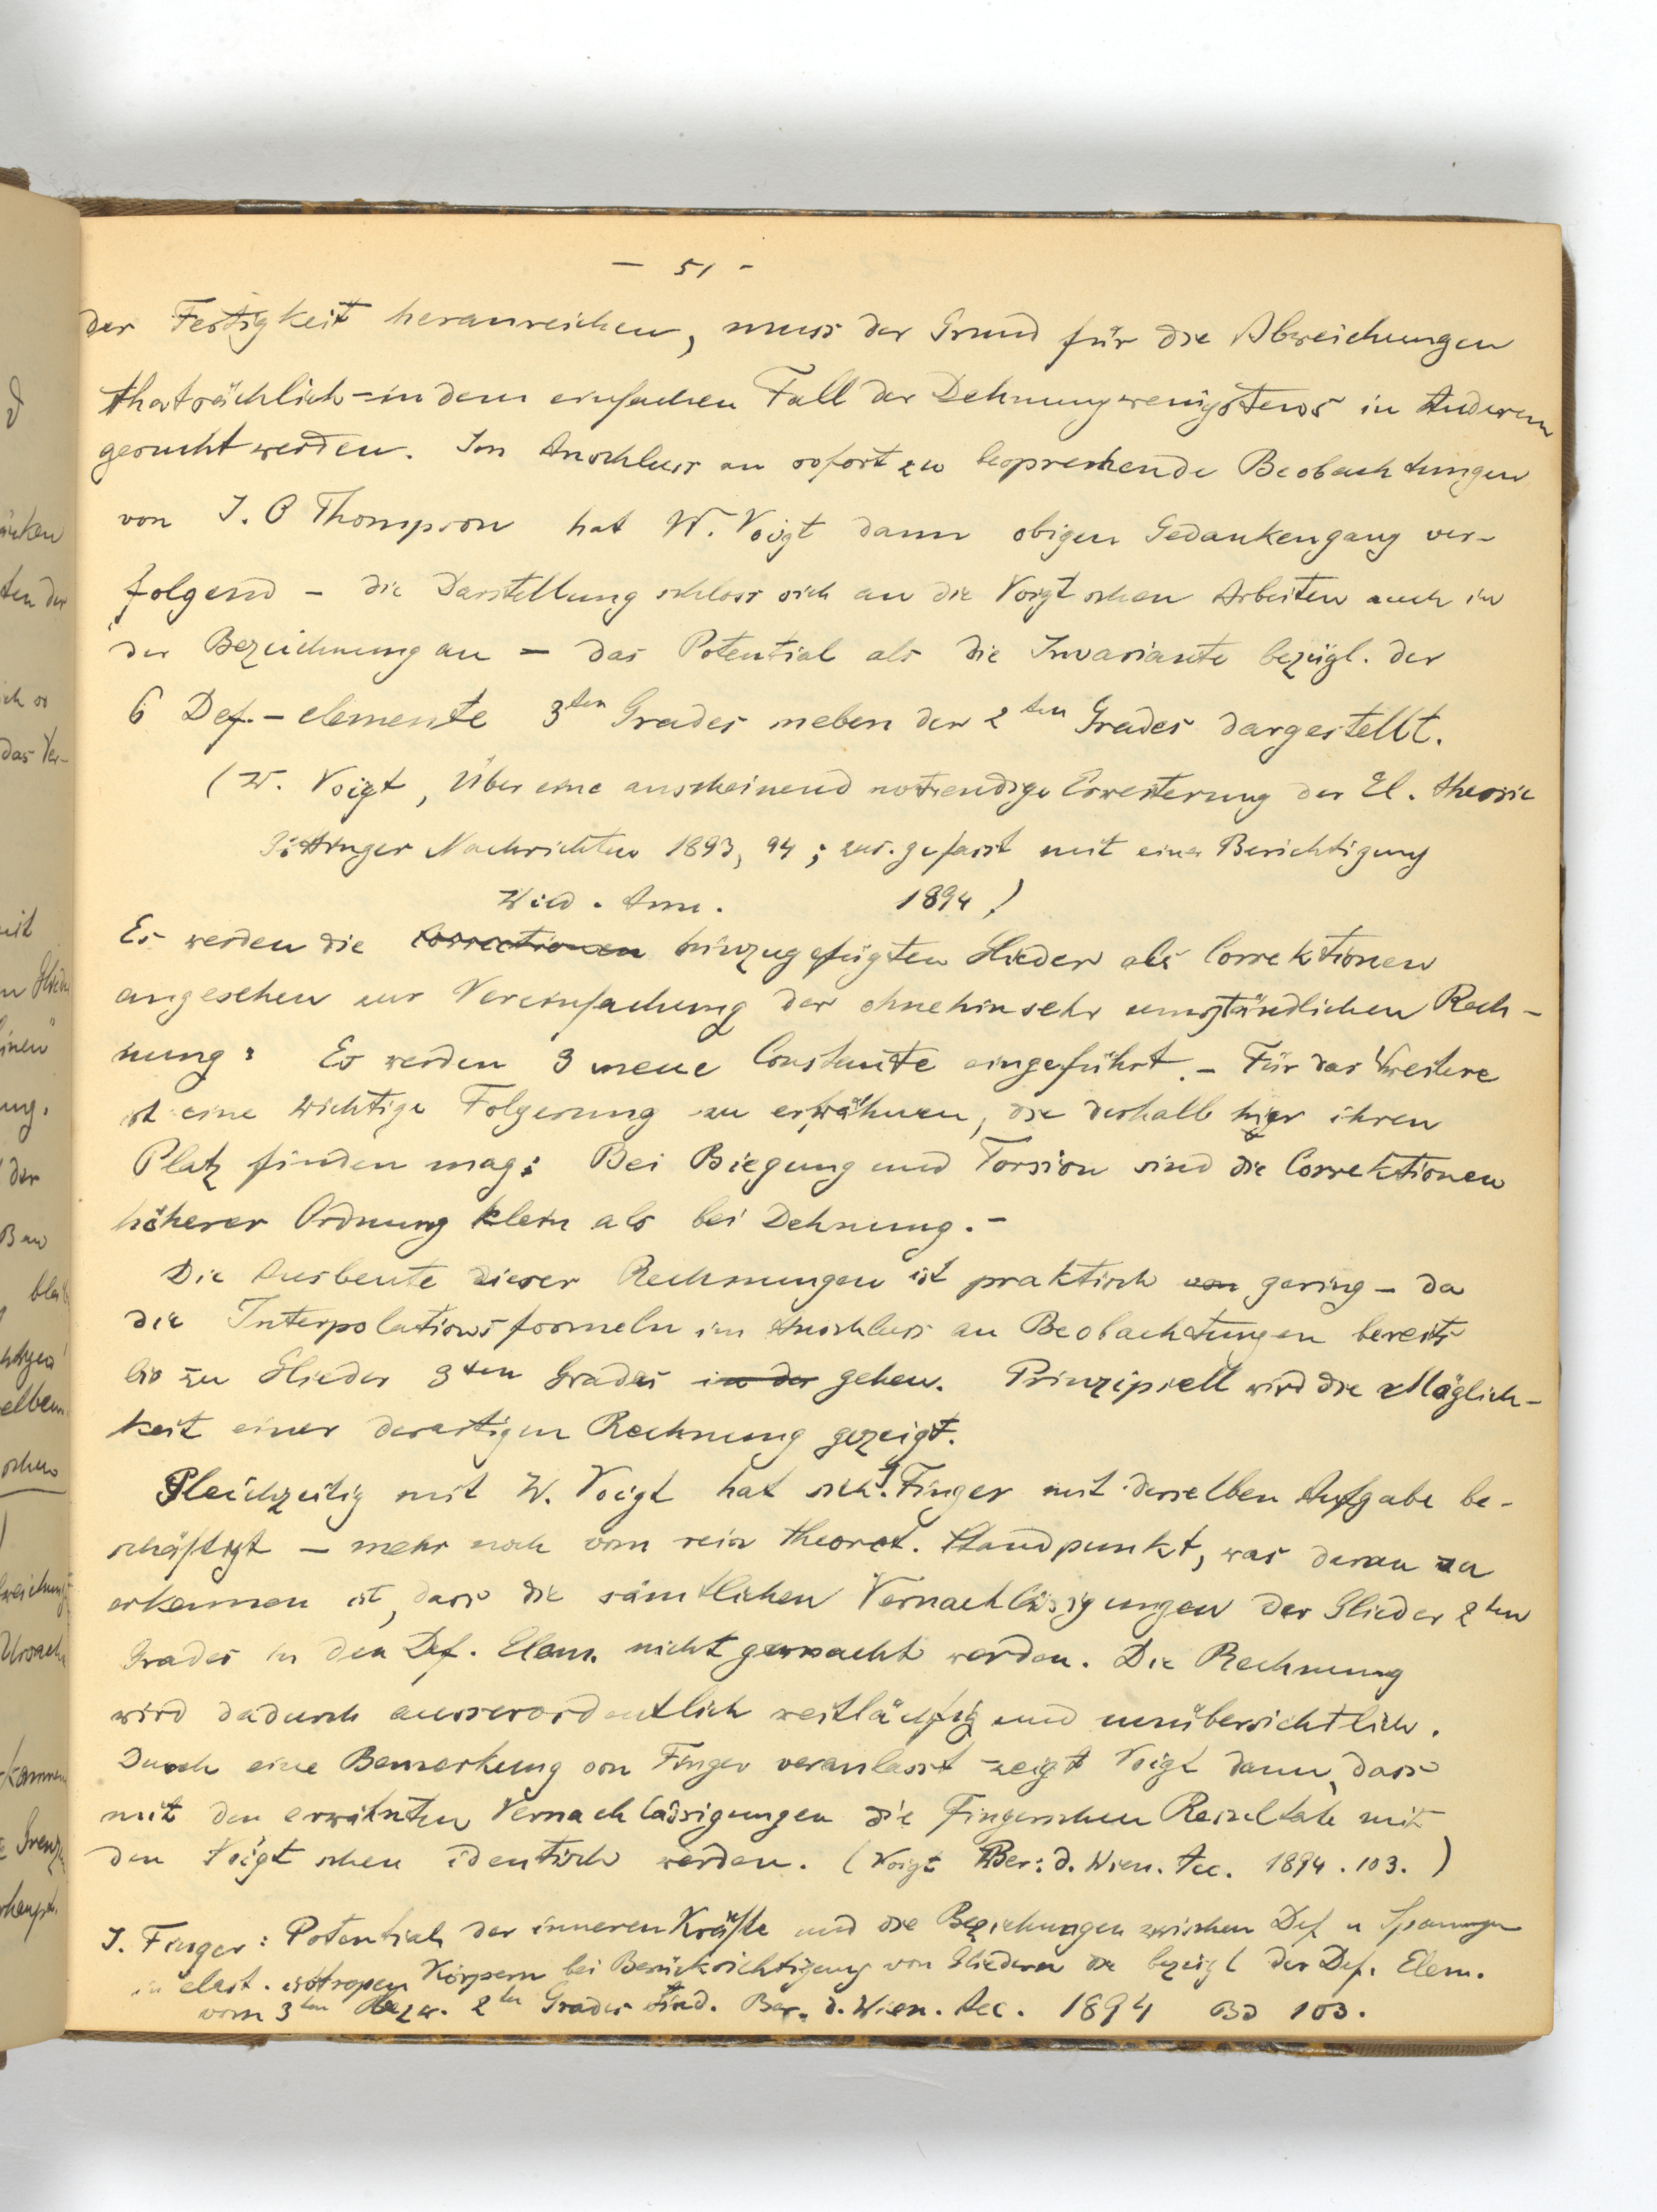 - 51 -
der Festigkeit heranreichen, muss der Grund für die Abweichungen
thatsächlich - in dem einfachen Fall der Dehnung wenigstens in Anderem
gesucht werden. Im Anschluss an sofort zu besprechende Beobachtungen
von J. O Thompson hat W. Voigt dann obigen Gedankengang ver-
folgend - die Darstellung schloss sich an die Voigtschen Arbeiten auch in
der Bezeichnung an - das Potential als die Invariante bezügl. der
6 Def.-elemente 3ten Grades neben der 2ten Grades dargestellt.
(W. Voigt, Über eine anscheinend notwendige Erweiterung der El. theorie
Göttinger Nachrichten 1893, 94; zus. gefasst mit einer Berichtigung
Wied. Ann. 1894)
Es werden die Correctionen hinzugefügten Glieder als Correktionen
angesehen zur Vereinfachung der ohnehin sehr umständlichen Rech-
nung: Es werden 3 neue Constante eingeführt. - Für das Weitere
ist eine wichtige Folgerung zu erwähnen, die deshalb hier ihren
Platz finden mag: Bei Biegung und Torsion sind die Correktionen
höherer Ordnung klein als bei Dehnung. -
Die Ausbeute dieser Rechnungen ist praktisch von gering - da
die Interpolationsformeln im Anschluss an Beobachtungen bereits
bis zu Glieder 3ten Grades in der gehen. Prinzipiell wird die Möglich-
keit einer derartigen Rechnung gezeigt.
Gleichzeitig mit W. Voigt hat sich J. Finger mit derselben Aufgabe be-
schäftigt - mehr noch vom rein theoret. Standpunkt, was daran zu
erkennen ist, dass die sämtlichen Vernachlässigungen der Glieder 2ten
Grades in den Def. Elem. nicht gemacht werden. Die Rechnung
wird dadurch ausserordentlich weitläufig und unübersichtlich.
Durch eine Bemerkung von Finger veranlasst zeigt Voigt dann, dass
mit den erwähnten Vernachlässigungen die Fingerschen Resultate mit
den Voigtschen identisch werden. (Voigt Ber: d. Wien. Acc. 1894. 103.)
J. Finger: Potential der inneren Kräfte und die Beziehungen zwischen Def u Spannungen
in elast. isotropen Körpern bei Berücksichtigung von Gliedern die bezügl der Def. Elem.
vom 3ten bezw. 2ten Grades sind. Ber. d. Wien. Acc. 1894 Bd 103.